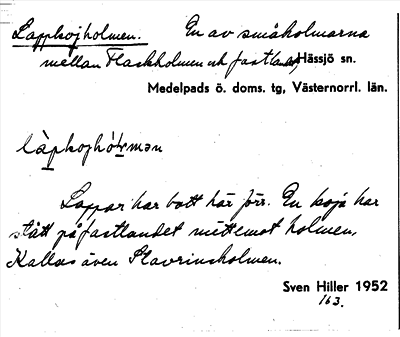 Lappkojholmen. En av småholmarna
mellan Flackholmen och fastlandet, Hässjö sn.
Medelpads ö. doms. tg, Västernorrl. län.
Lappar har bott här förr. En koja har
stått på fastlandet mittemot holmen.
Kallas även Stavrinsholmen.
Sven Hiller 1952
163.